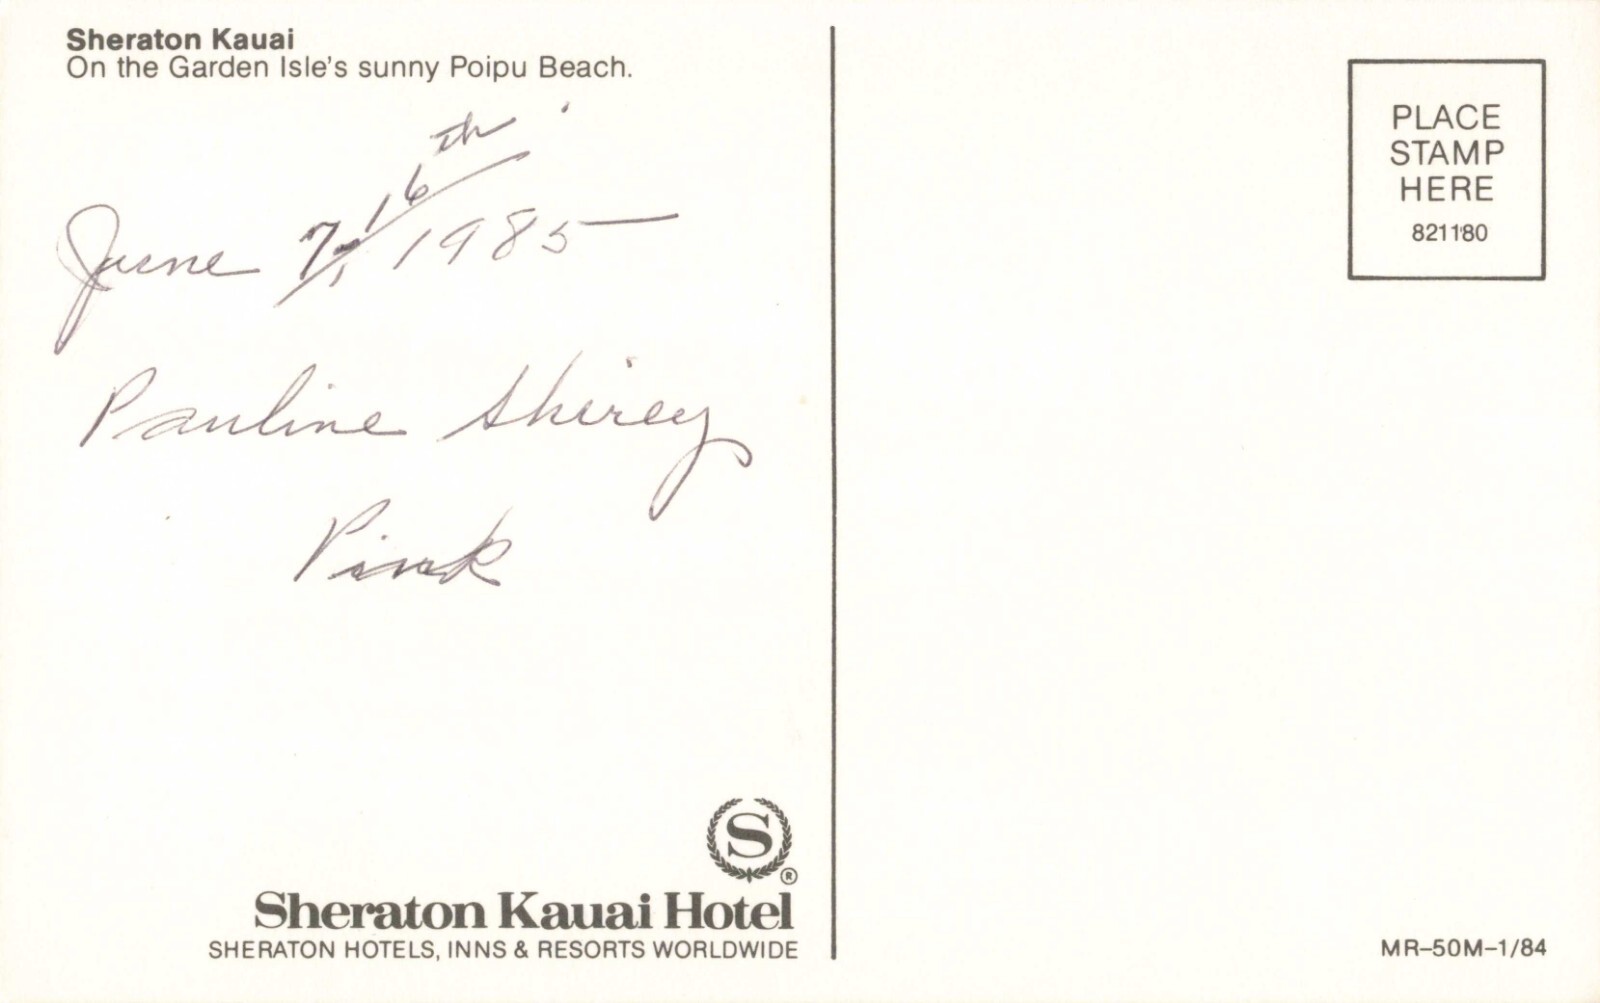 Sheraton Kauai
On the Garden Isle's sunny Poipu Beach.
June 7, 16th 1985
Pauline Shirey
Pink
S
®
Sheraton Kauai Hotel
SHERATON HOTELS, INNS & RESORTS WORLDWIDE
PLACE
STAMP
HERE
821180
MR–50M–1/84